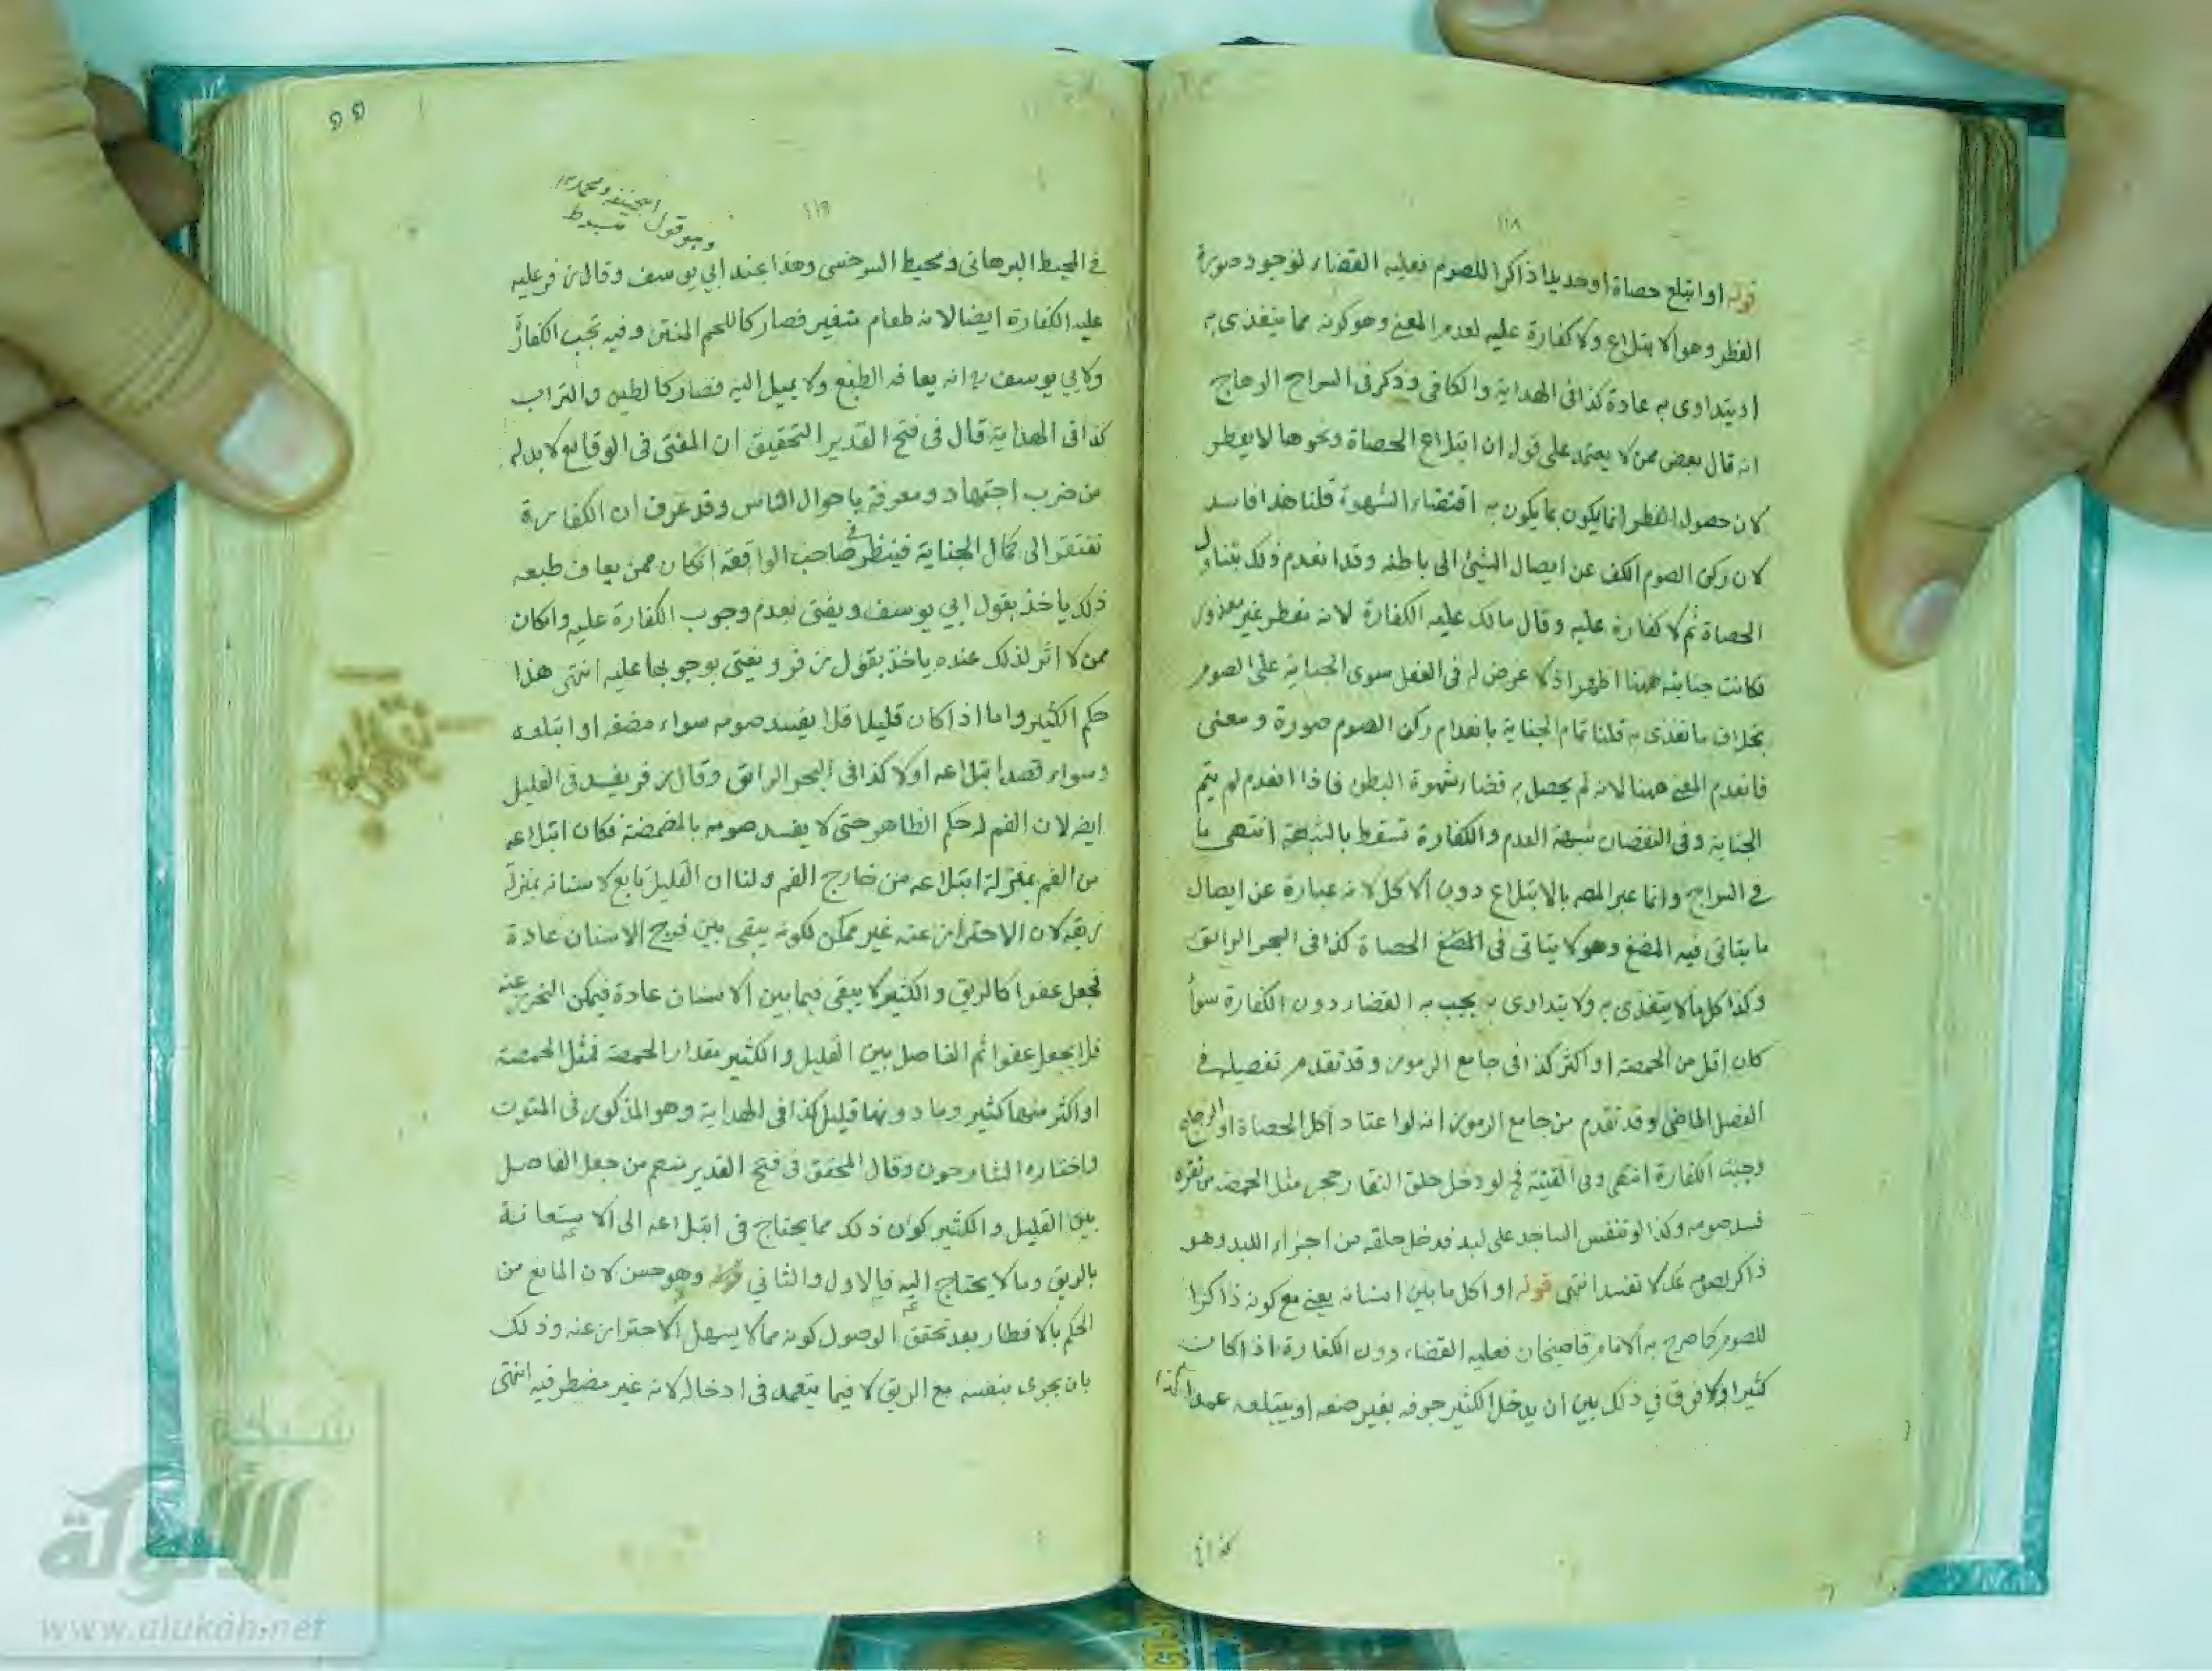 ١١٨
قوله او ابتلع حصاة او حديدا ذاكرا للصوم فعليه القضاء لوجود صورة
الفطر وهو الابتلاع ولا كفارة عليه لعدم المعنى وهو كونه مما يتغذى به
او يتداوى به عادة كذا فى الهداية والكافى وذكر فى السراج الوهاج
انه قال بعض ممن لا يعتمد على قوله ان ابتلاع الحصاة ونحوها لا يفطر
لان حصول الفطر انما يكون بما يكون به اقتضاء الشهوة قلنا هذا فاسد
لان ركن الصوم الكف عن ايصال الشئ الى باطنه وقد انعدم ذلك بتناول
الحصاة ثم لا كفارة عليه وقال مالك عليه الكفارة لانه مفطر غير معذور
فكانت جنايته ههنا اظهر اذ لا غرض له فى الفعل سوى الجناية على الصوم
بخلاف ما تغذى به قلنا تمام الجناية بانعدام ركن الصوم صورة ومعنى
فانعدم المعنى ههنا لانه لم يحصل به قضاء شهوة البطن فاذا انعدم لم يتم
الجناية وفى النقصان شبهة العدم والكفارة تسقط بالشبهة انتهى ما
فى السراج وانما عبر المصـ بالابتلاع دون الاكل لانه عبارة عن ايصال
ما يتاتى فيه المضغ وهو لا يتاتى فى المضغ الحصاة كذا فى البحر الرائق
وكذا كل ما لا يتغذى به ولا يتداوى به يجب به القضاء دون الكفارة سواء
كان اقل من الحمصة او اكثر كذا فى جامع الرموز وقد تقدم تفصيله فى
الفصل الماضى وقد تقدم من جامع الرموز انه لو اعتاد اكل الحصاة او الزجاج
وجبت الكفارة انتهى وفى القنية فخ لو دخل حلق النقار حجر مثل الحمصة من نقره
فسد صومه وكذا لو تنفس الساجد على لبد فدخل حلقه من اجزاء اللبد وهو
ذاكر لصومه عك لا تفسد انتهى قوله او اكل ما بين اسنانه يعنى مع كونه ذاكرا
للصوم كما صرح به الامام قاضيخان فعليه القضاء دون الكفارة اذا كان
كثيرا ولا فرق في ذلك بين ان يدخل الكثير جوفه بغير صنعه او يبتلعه عمدا كذا
كذا فى
٥٥
١١٩
وهو قول ابيحنيفة ومحمد
مبسوط
فى المحيط البرهانى ومحيط السرخسى وهذا عند ابي يوسف وقال زفر عليه
عليه الكفارة ايضا لانه طعام متغير فصار كاللحم المنتن وفيه تجب الكفارة
ولابي يوسف انه يعافه الطبع ولا يميل اليه فصار كالطين والتراب
كذا فى الهداية قال فى فتح القدير التحقيق ان المفتى فى الوقايع لا بد له
من ضرب اجتهاد ومعرفة باحوال الناس وقد عرف ان الكفارة
تفتقر الى كمال الجناية فينظر فى صاحب الواقعة ان كان ممن يعاف طبعه
ذلك ياخذ بقول ابي يوسف ويفتى بعدم وجوب الكفارة عليه وان كان
ممن لا اثر لذلك عنده ياخذ بقول زفر ويفتى بوجوبها عليه انتهى هذا
حكم الكثير واما اذا كان قليلا فلا يفسد صومه سواء مضغه او ابتلعه
وسواء قصد ابتلاعه اولا كذا فى البحر الرائق وقال زفر يفسد فى القليل
ايضـ لان الفم له حكم الظاهر حتى لا يفسد صومه بالمضمضة فكان ابتلاعه
من الفم بمنزلة ابتلاعه من خارج الفم ولنا ان القليل تابع لاسنانه بمنزلة
ريقه لان الاحتراز عنه غير ممكن لكونه يبقى بين فرج الاسنان عادة
فجعل عفوا كالريق والكثير لا يبقى فيما بين الاسنان عادة فيمكن التحرز عنه
فلا يجعل عفوا ثم الفاصل بين القليل والكثير مقدار الحمصة فمثل الحمصة
او اكثر منها كثير وما دونها قليل كذا فى الهداية وهو المذكور فى المتون
واختاره الشارحون وقال المحقق فى فتح القدير منهم من جعل الفاصل
بين القليل والكثير كون ذلك مما يحتاج فى ابتلاعه الى الاستعانة
بالريق وما لا يحتاج اليه فالاول والثاني وهو حسن لان المانع من
الحكم بالافطار بعد تحقق الوصول كونه مما لا يسهل الاحتراز عنه وذلك
بان يجرى بنفسه مع الريق لا فيما يتعمد فى ادخاله لانه غير مضطر فيه انتهى
شبكة
الألوكة
www.alukah.net